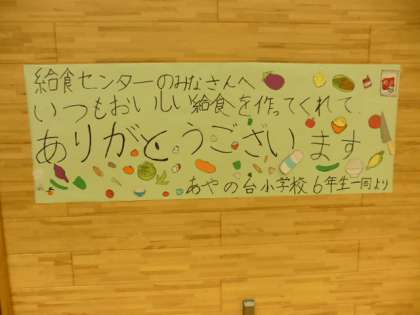 給食センターのみなさんへ
いつもおいしい給食を作ってくれて
ありがとうございます
あやの台小学校 6年生一同より